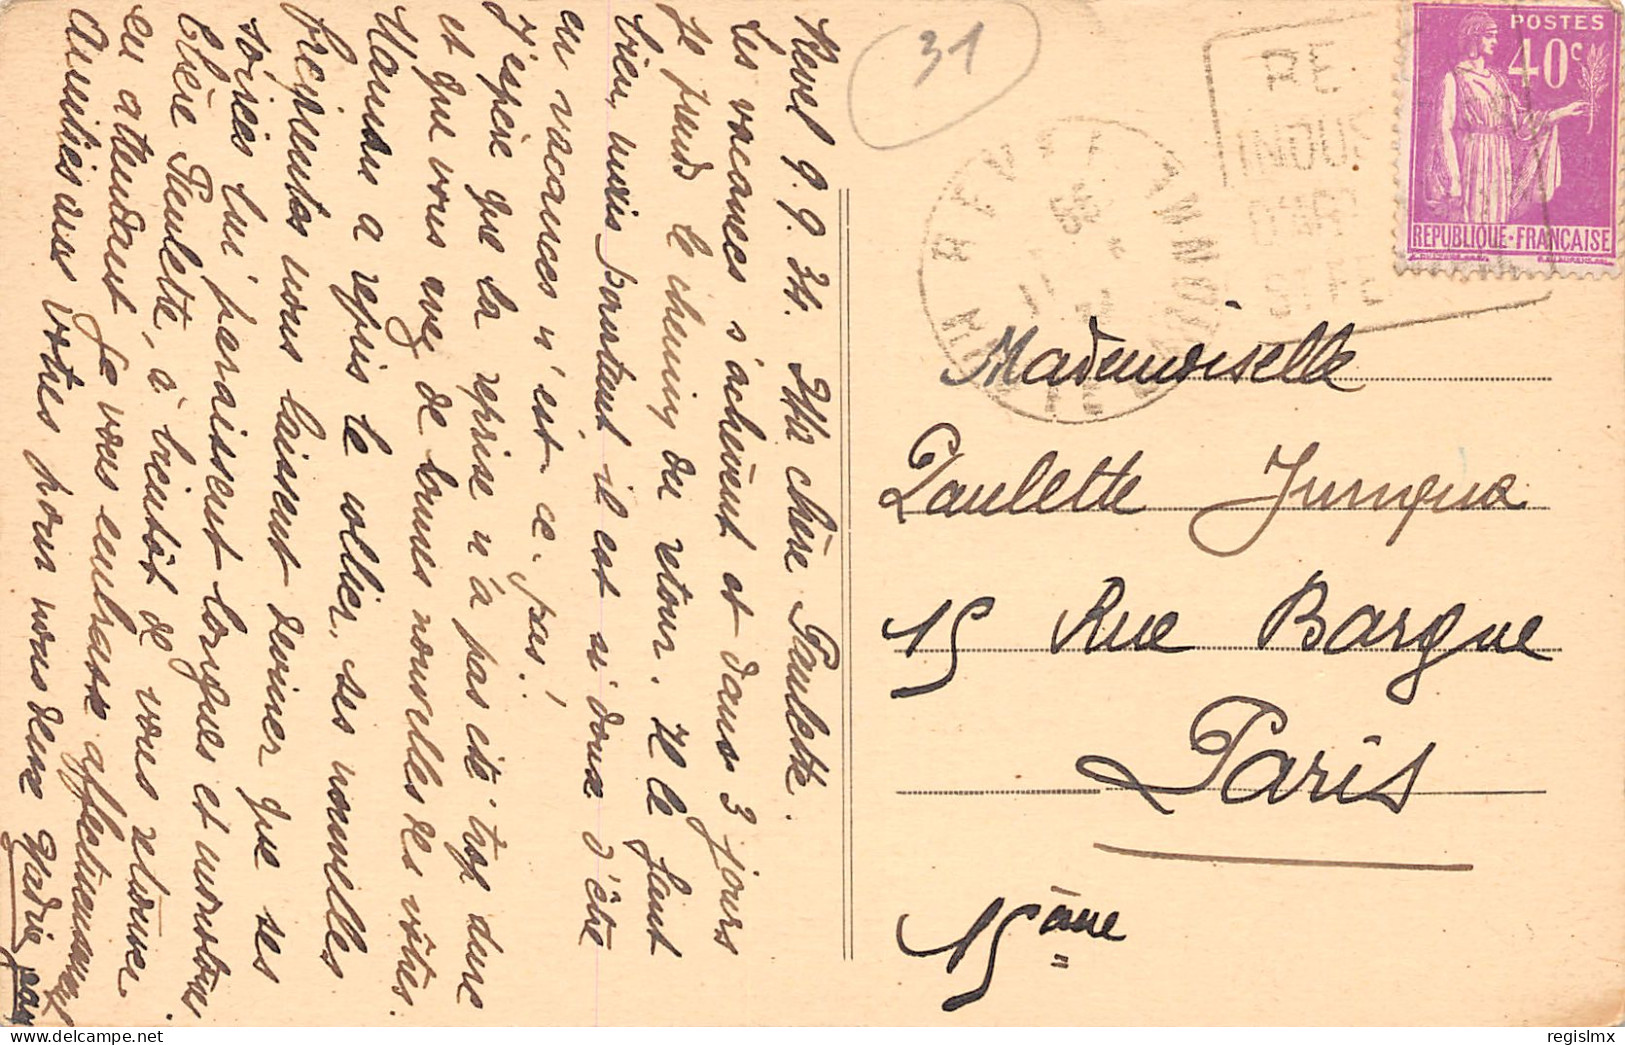 Revel 9.9.34. Ma chère Paulette.
Les vacances s'achèvent et dans 3 jours
je prends le chemin du retour. Il le faut
bien, mais pourtant il est si doux d'être
en vacances n'est ce-pas!
J'espère que la reprise n'a pas été trop dure
et que vous avez de bonnes nouvelles des vôtres.
Maman a repris le collier, ses nouvelles
fréquentes nous laissent deviner que ses
soirées lui paraissent longues et monotones.
Chère Paulette, à bientôt de vous retrouver
en attendant je vous embrasse affectueusement
Amitiés aux vôtres pour nous deux
31
REVEL
HTE GARONNE
RE
INDUS
D'ART
POSTES
40c
REPUBLIQUE·FRANÇAISE
Mademoiselle
Paulette Junqua
15 Rue Bargue
Paris
15ème
regislmx
delcampe.net